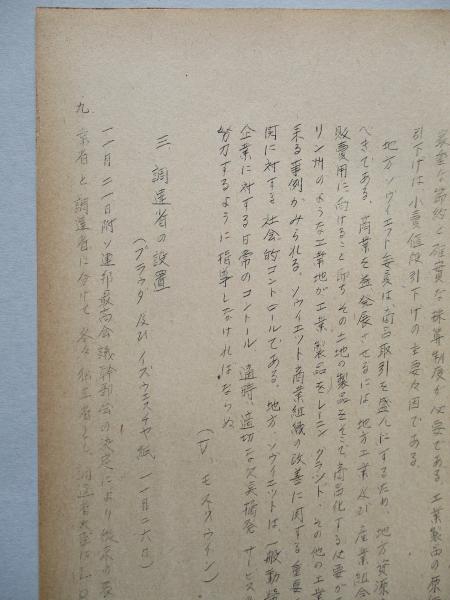 厳重な節約と確実な採算制度が必要である。工業製品の原価
引下げは小賣値段引下げの主要々因である。
地方ソヴイエト委員は、商品取引を盛んにするため、地方資源
べきである。商業を益々発展させるには、地方工業及び産業組合
販費用に向けること、即ち、その土地の製品をそこで商品化する必要が
リン州のような工業地が工業製品をレーニングラント、その他の工業
来る事例がみられる。ソヴイエット商業組織の改善に関する重要
関に対する社会的コントロールである。地方ソヴイエットは一般勤労
企業に対する日常のコントロール 適時、適切な欠点摘発 サービス
努力するように指導しなければならぬ
(V、モスクウイン)
三、調達省の設置
(プラウダ及イズウエスチヤ紙 一一月二六日)
一一月二一日附ソ連邦最高会議幹部会の決定により従来の農
業省と調達省に分けて 各々独立省とし、調達省大臣は
九